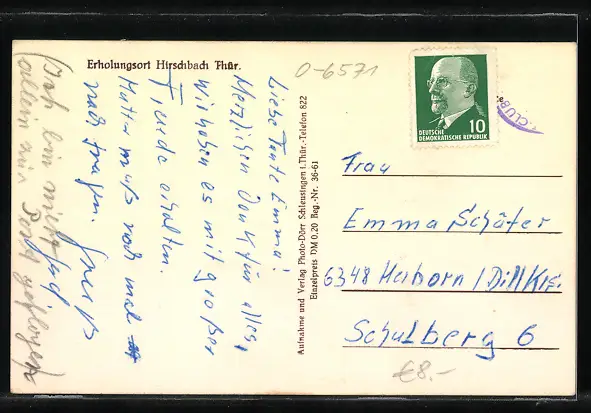 Erholungsort Hirschbach Thür.
0-6571
Liebe Tante Emma!
Herzlichen Dank für alles,
wir haben es mit großer
Freude erhalten.
Mutter muß noch mal
nach fragen. Gruß
Ich bin nicht
allein mit geflogen
Aufnahme und Verlag Photo-Dörr Schleusingen i. Thür.-Telefon 822
Einzelpreis DM 0,20 Reg.-Nr. 36-61
DEUTSCHE
DEMOKRATISCHE REPUBLIK
10
CLUB
Frau
Emma Schäfer
6348 Herborn / Dillkrs.
Schulberg 6
€8.-